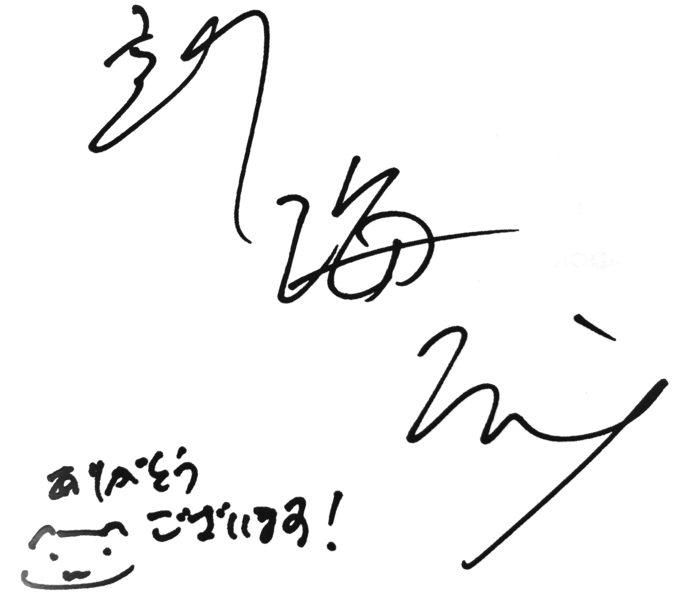 新海誠
ありがとう
ございます!